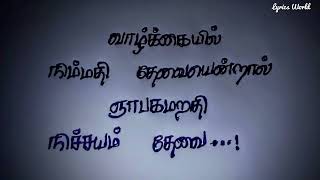 Lyrics World
வாழ்க்கையில்
நிம்மதி தேவையென்றால்
ஞாபகமறதி
நிச்சயம் தேவை...!